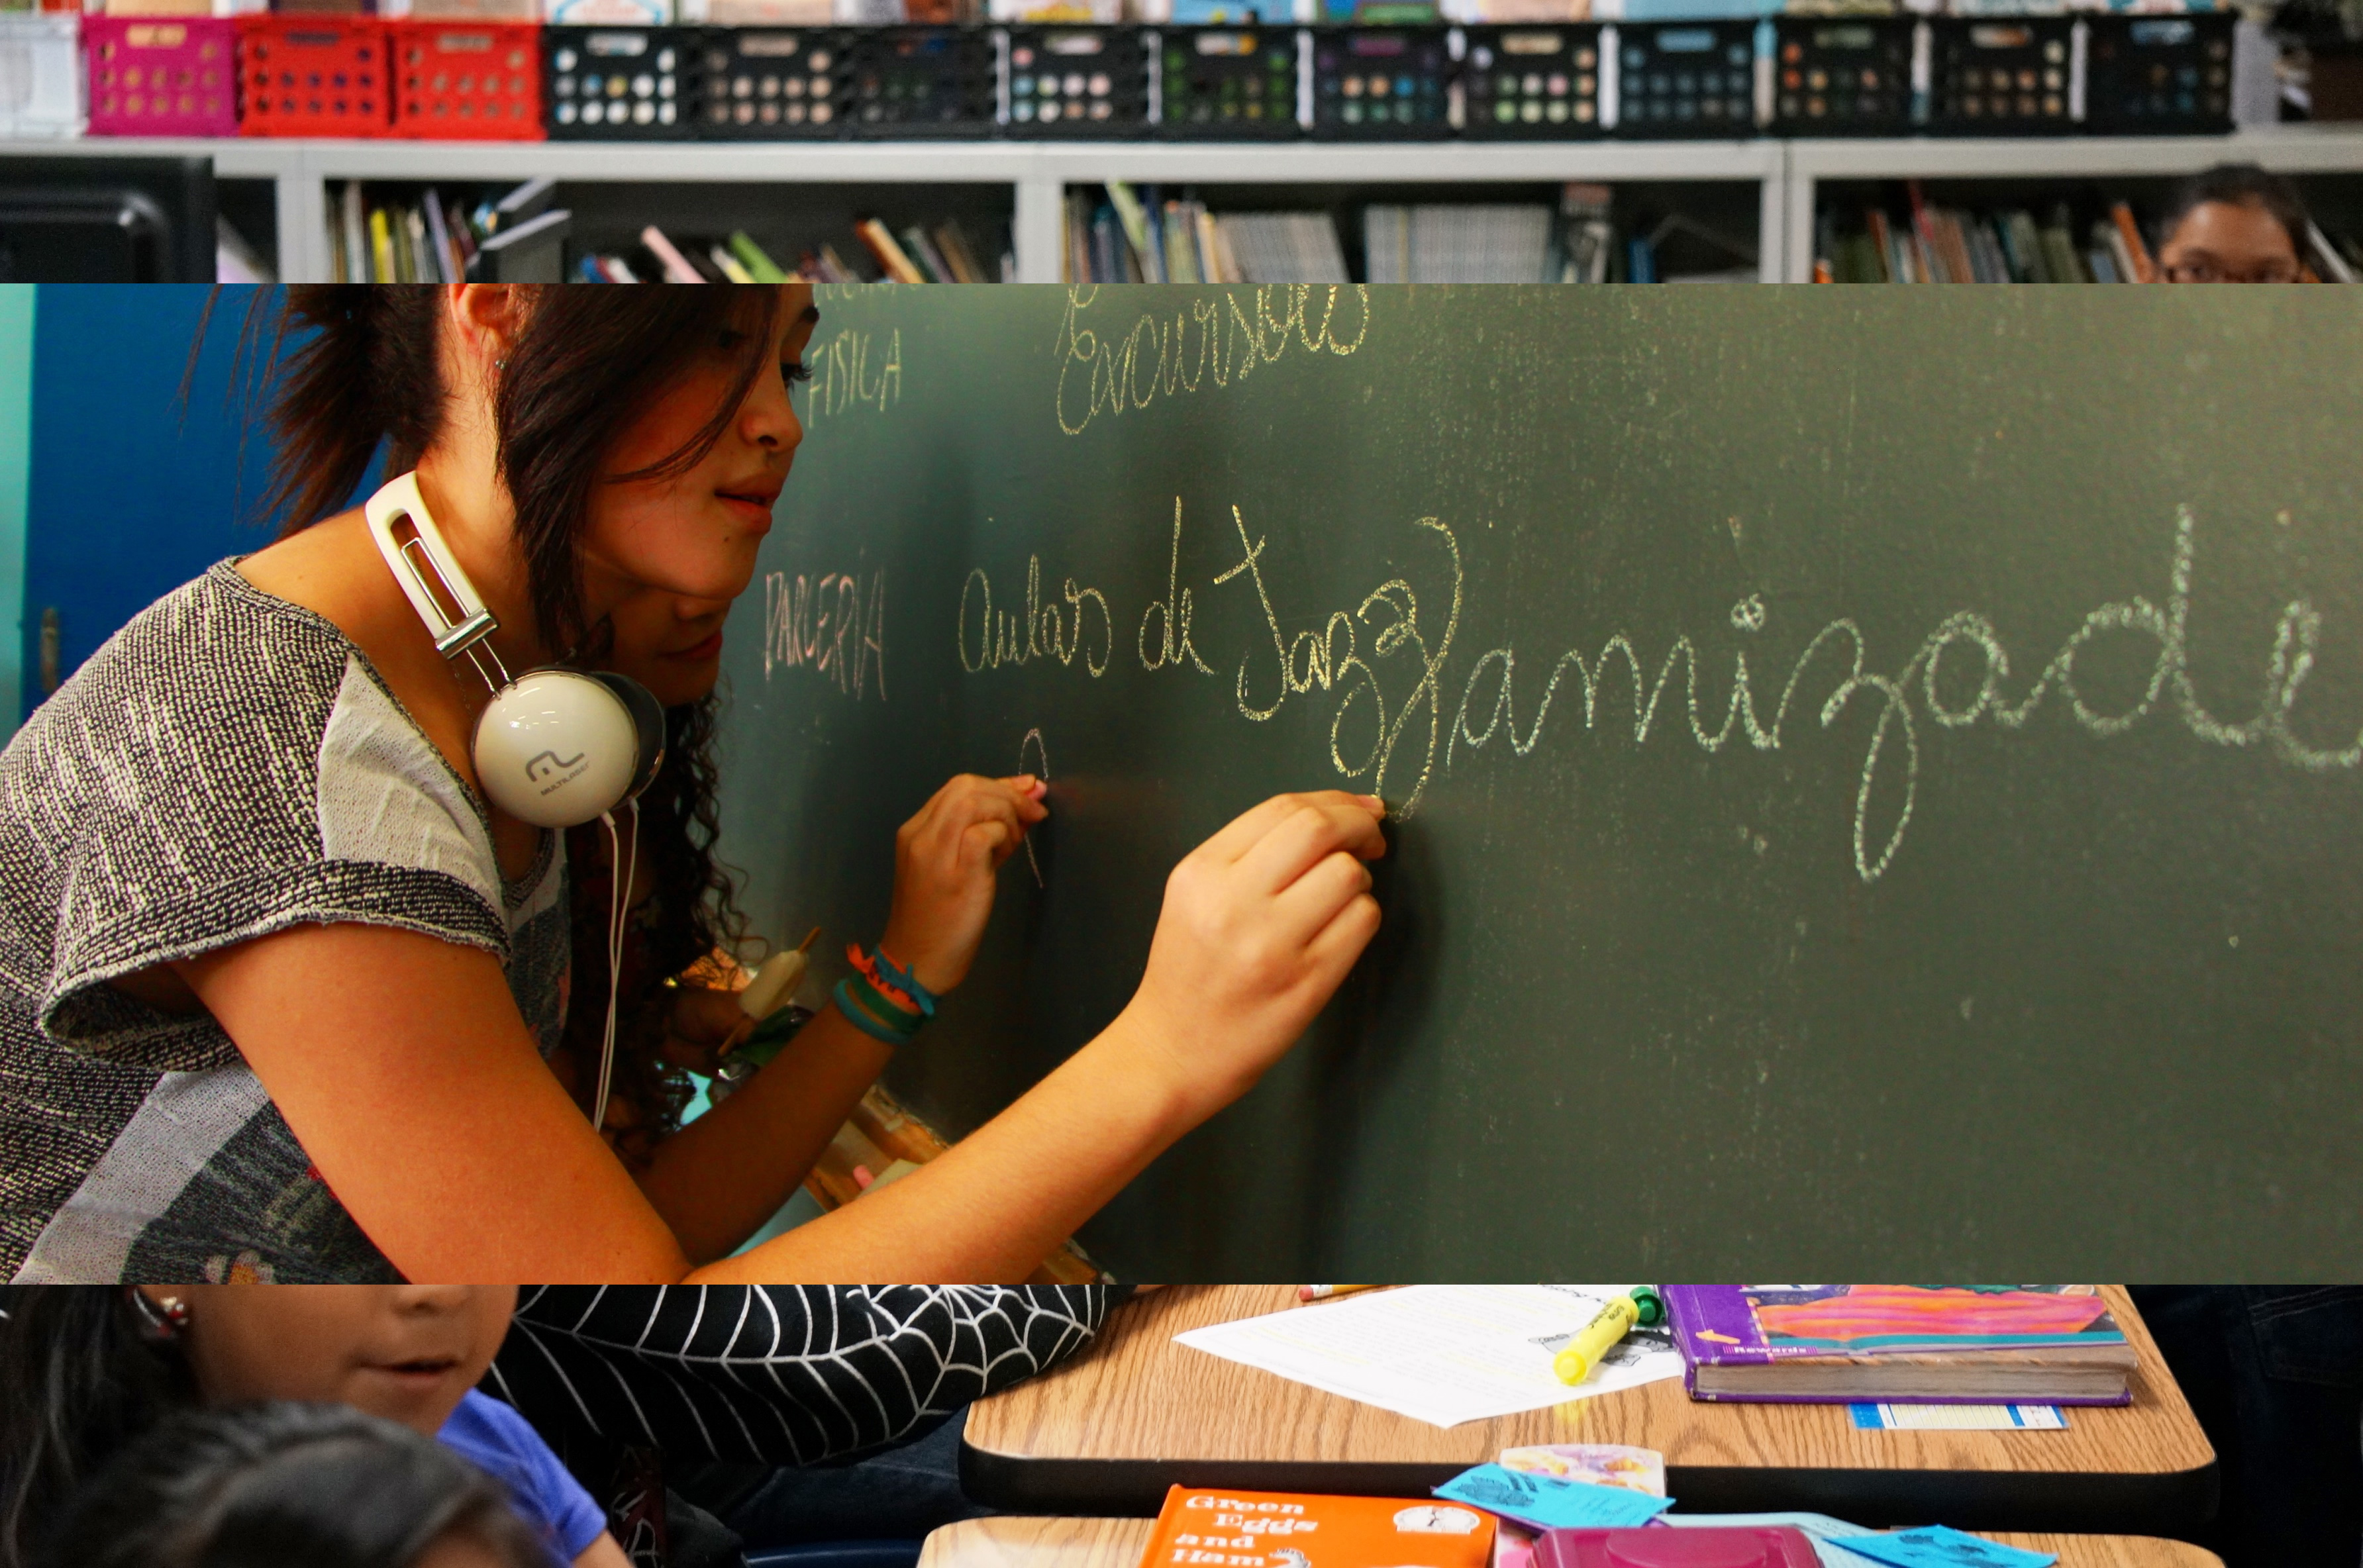 FISICA
Excursões
PARCERIA
Aulas de Jazz
amizade
MULTILASER
Rewards
Green
Eggs
and
Ham